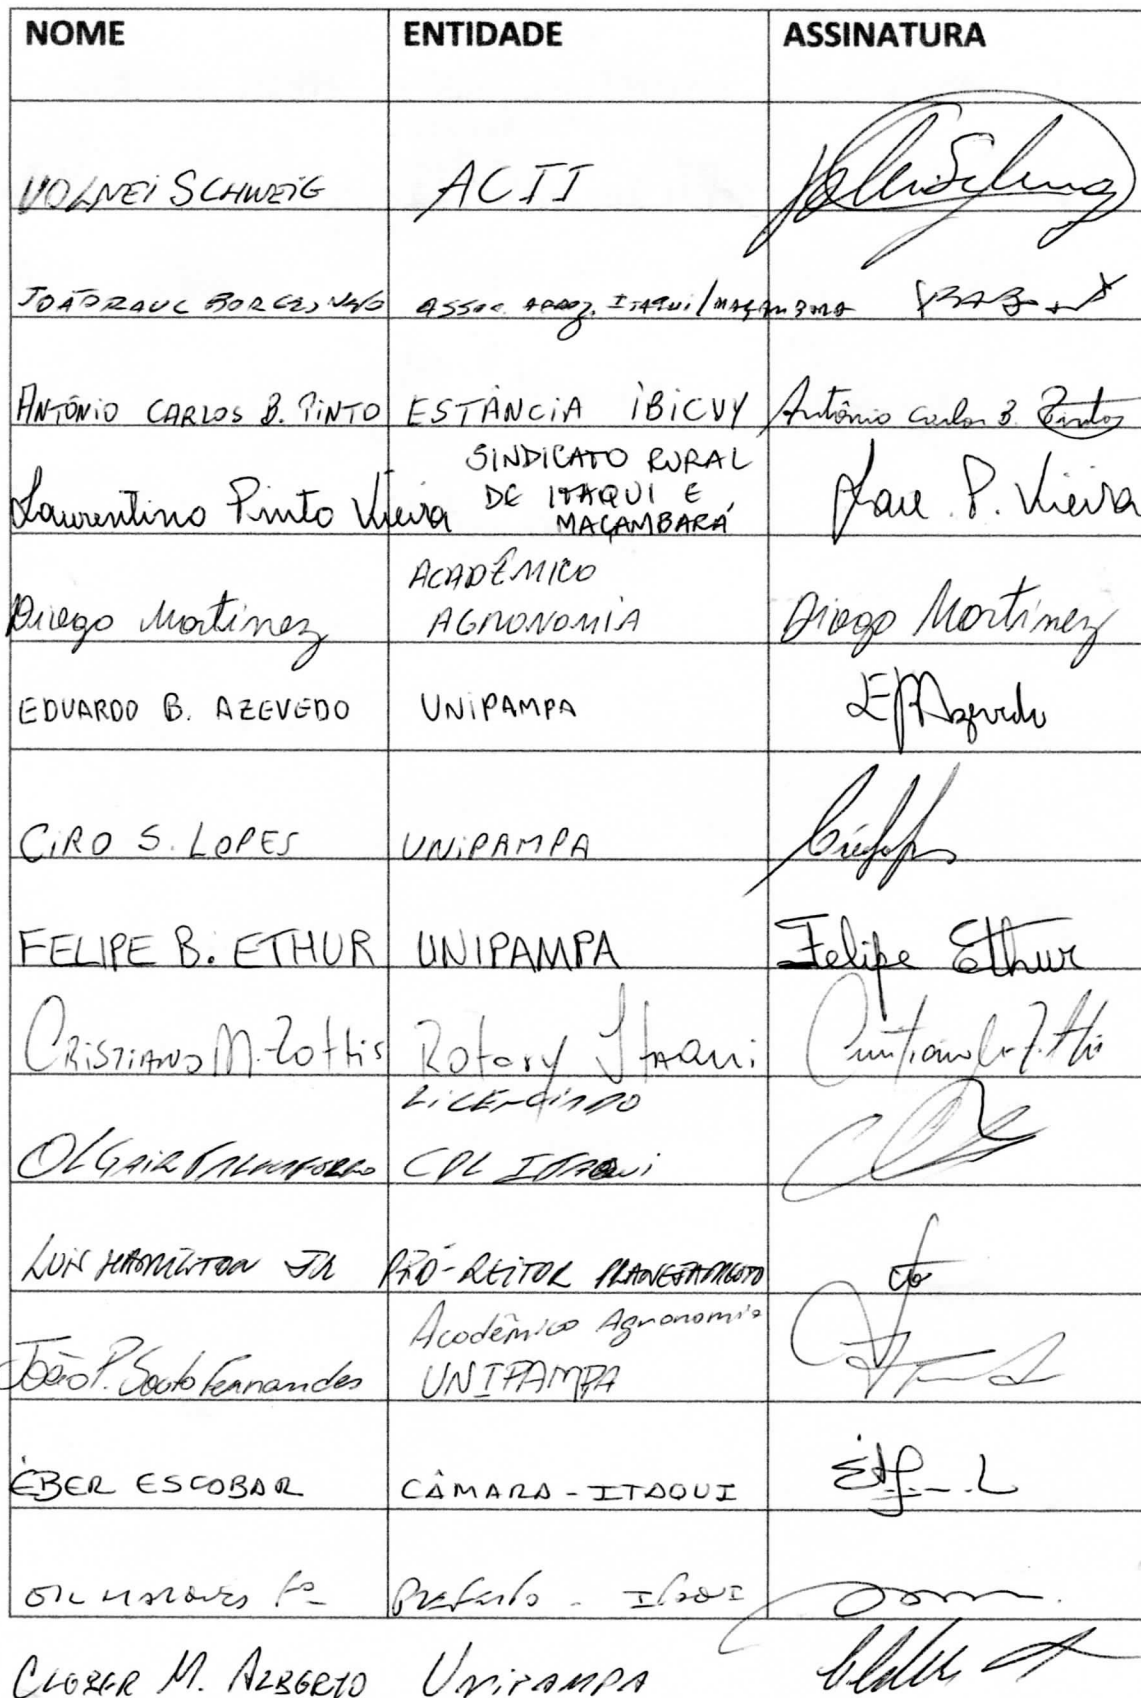 NOME ENTIDADE ASSINATURA
VOLNEI SCHWEIG ACII
JOÃO RAUL BORGES NETO ASSOC. ARROZ. ITAQUI/MAÇAMBARA
ANTÔNIO CARLOS B. PINTO ESTÂNCIA IBICUY Antônio Carlos B. Pinto
Laurentino Pinto Vieira SINDICATO RURAL
DE ITAQUI E
MAÇAMBARÁ
Laur. P. Vieira
Diego Martinez ACADÊMICO
AGRONOMIA
Diego Martinez
EDUARDO B. AZEVEDO UNIPAMPA EBAzevedo
CIRO S. LOPES UNIPAMPA
FELIPE B. ETHUR UNIPAMPA Felipe Ethur
CRISTIANO M. Zottis Rotary Itaqui
OLGAIR LICENCIADO
CDL ITAQUI
LUIS HAMILTON JR PRÓ-REITOR PLANEJAMENTO
João P. Souto Fernandes Acadêmico Agronomia
UNIPAMPA
ÉBER ESCOBAR CÂMARA - ITAQUI
GIL MARQUES Fº Prefeito - ITAQUI
CLEBER M. ALBERTO UNIPAMPA